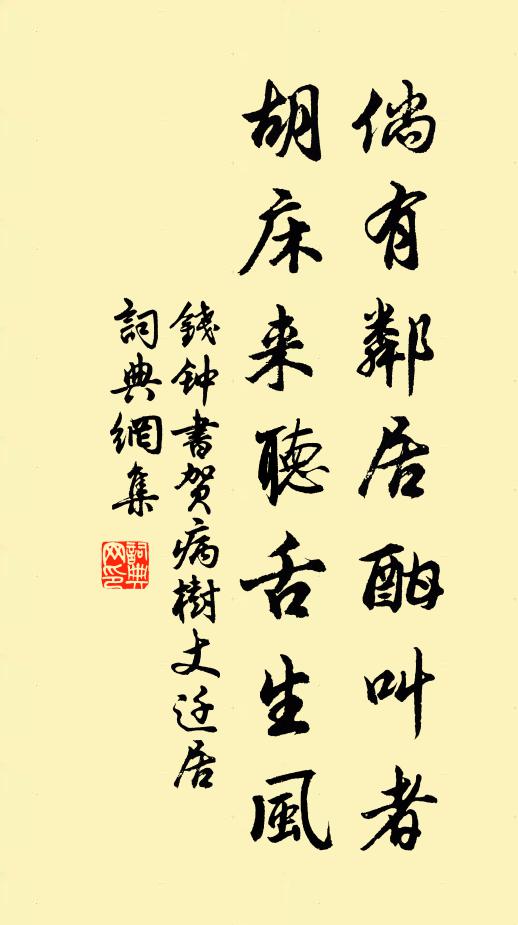 倘有鄰居酣叫者
胡床来聽舌生風
錢钟書贺病樹丈迁居
詞典網集
詞典
网印